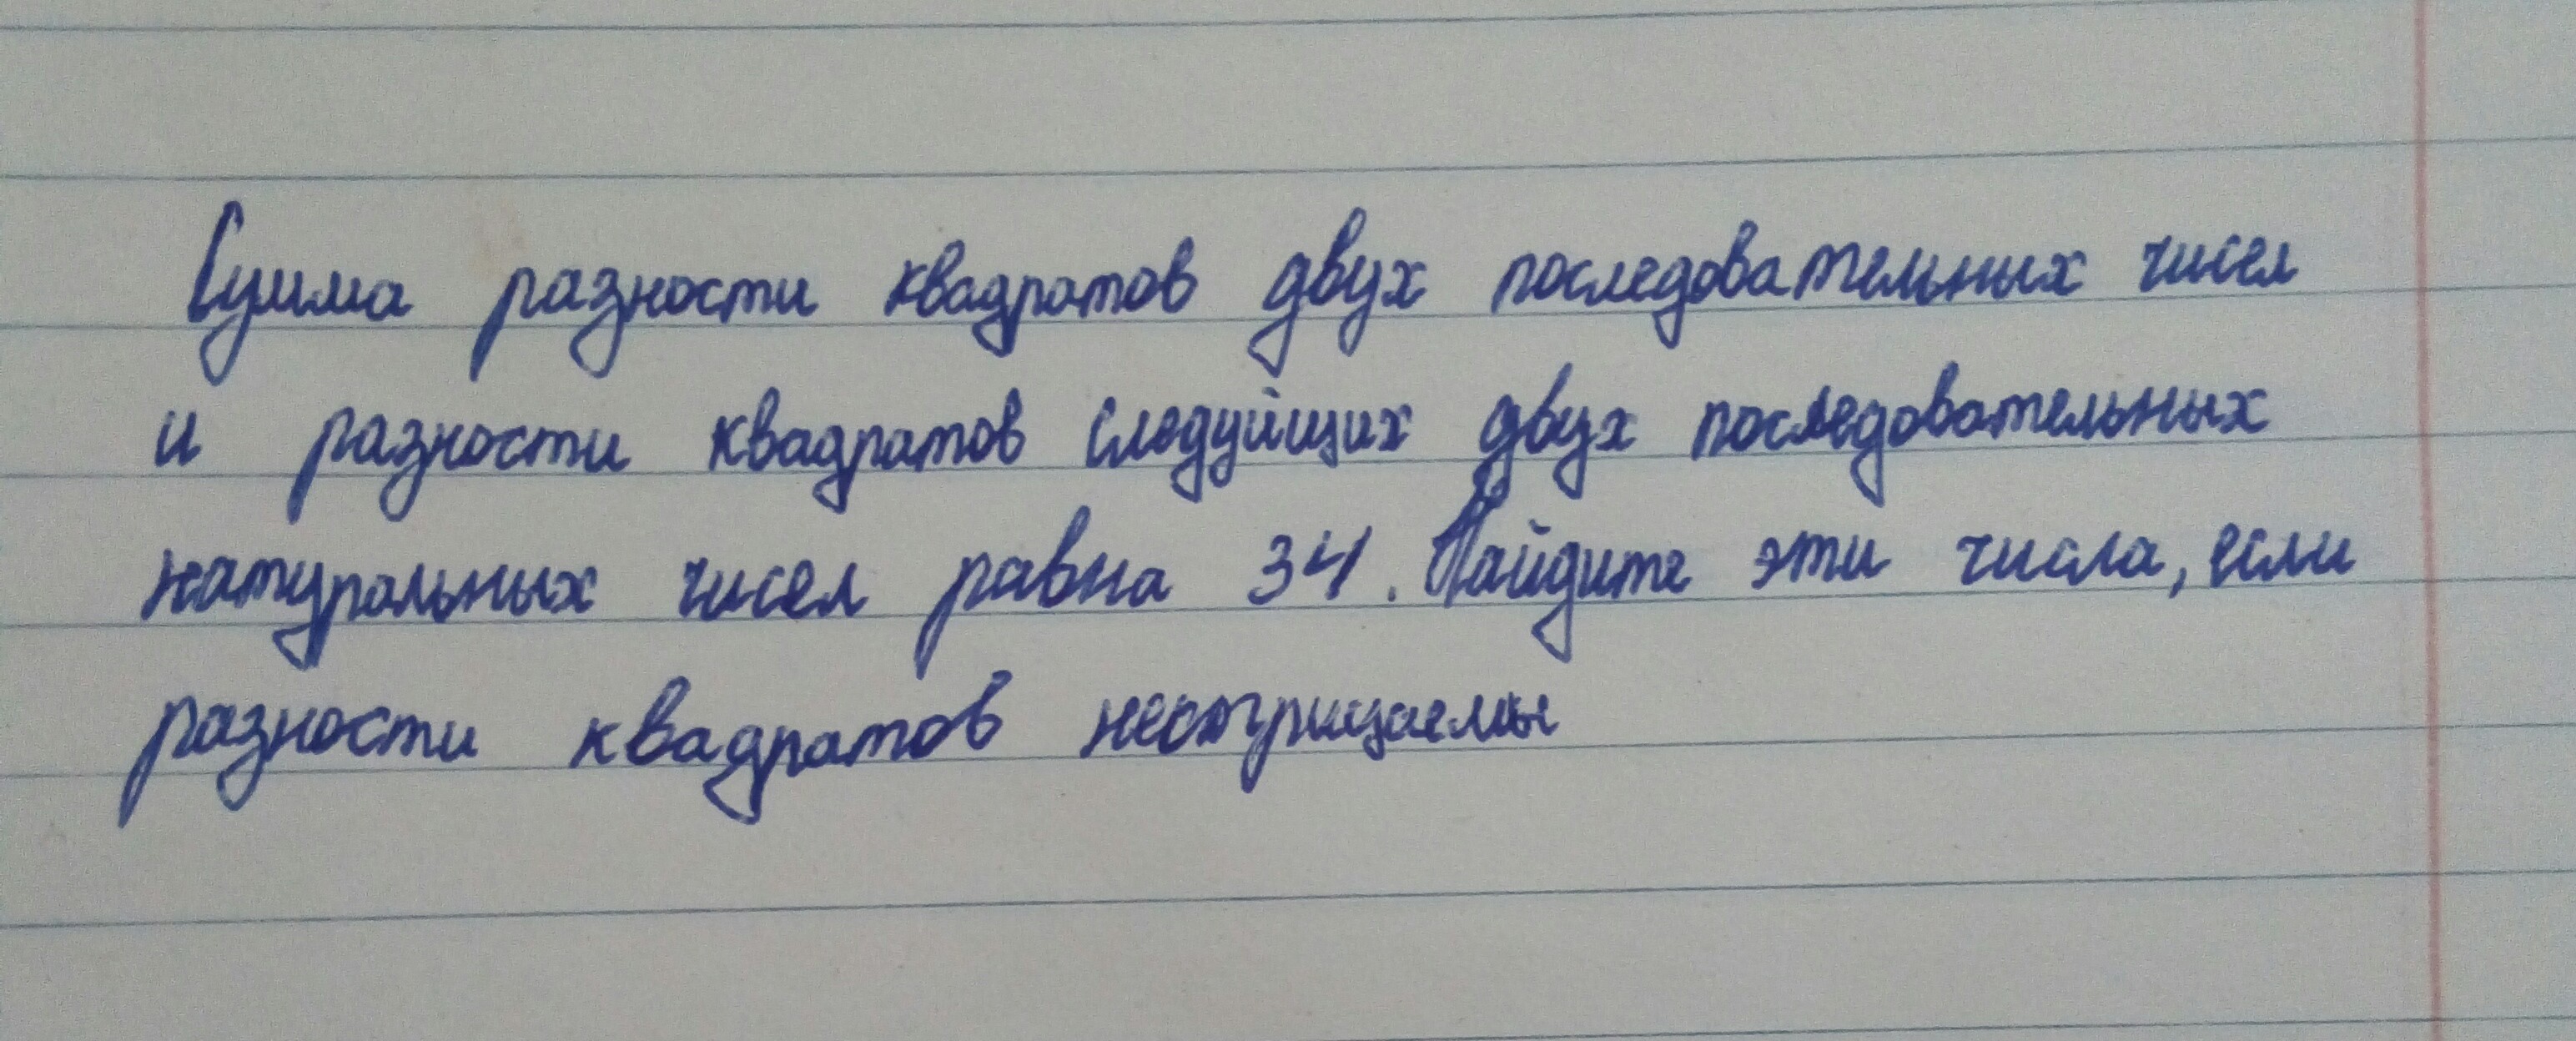 Сумма разности квадратов двух последовательных чисел
и разности квадратов следуйщих двух последовательных
натуральных чисел равна 34. Найдите эти числа, если
разности квадратов неотрицаемы